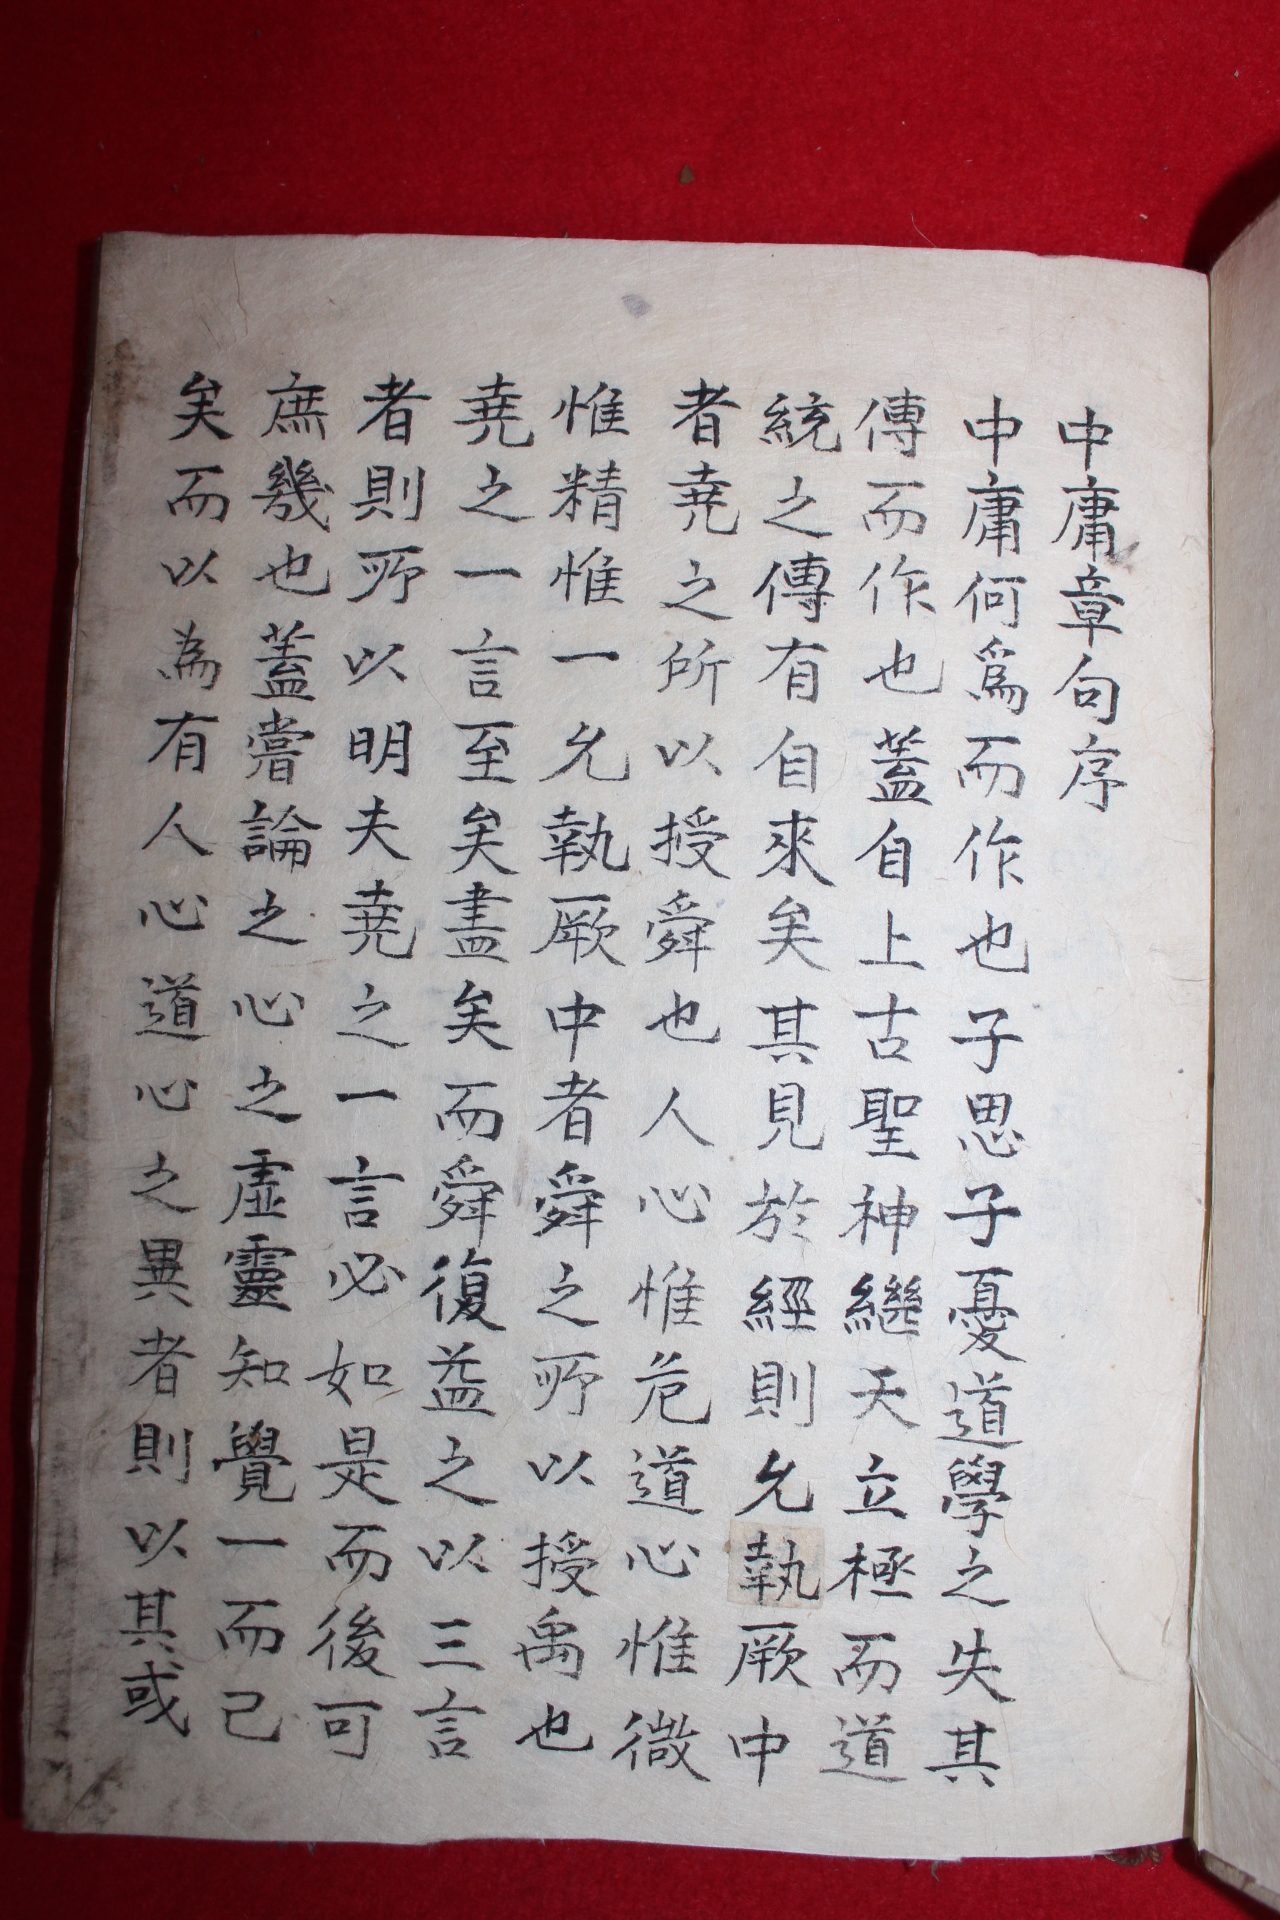 中庸章句序
中庸何爲而作也子思子憂道學之失其
傳而作也蓋自上古聖神繼天立極而道
統之傳有自來矣其見於經則允執厥中
者堯之所以授舜也人心惟危道心惟微
惟精惟一允執厥中者舜之所以授禹也
堯之一言至矣盡矣而舜復益之以三言
者則所以明夫堯之一言必如是而後可
庶幾也蓋嘗論之心之虛靈知覺一而已
矣而以為有人心道心之異者則以其或